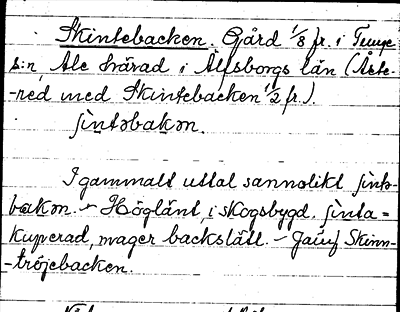 Skintebacken. Gård 1/8 fr. i Tunge
s:n, Ale härad i Älfsborgs län (Åste-
-red med Skintebacken 1 1/2 fr.).
ʃintəbakən.
I gammalt uttal sannolikt ʃintə-
bakən. – Höglänt, i skogsbygd.
kuperad, mager backslätt. – Jämf Skinn-
-tröjebacken.